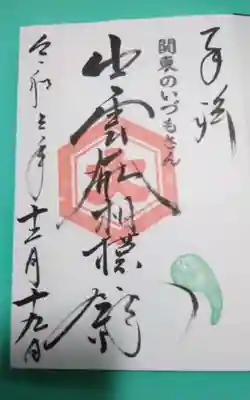 奉拝
関東のいづもさん
出雲大社相模分祠
令和五年十二月十九日